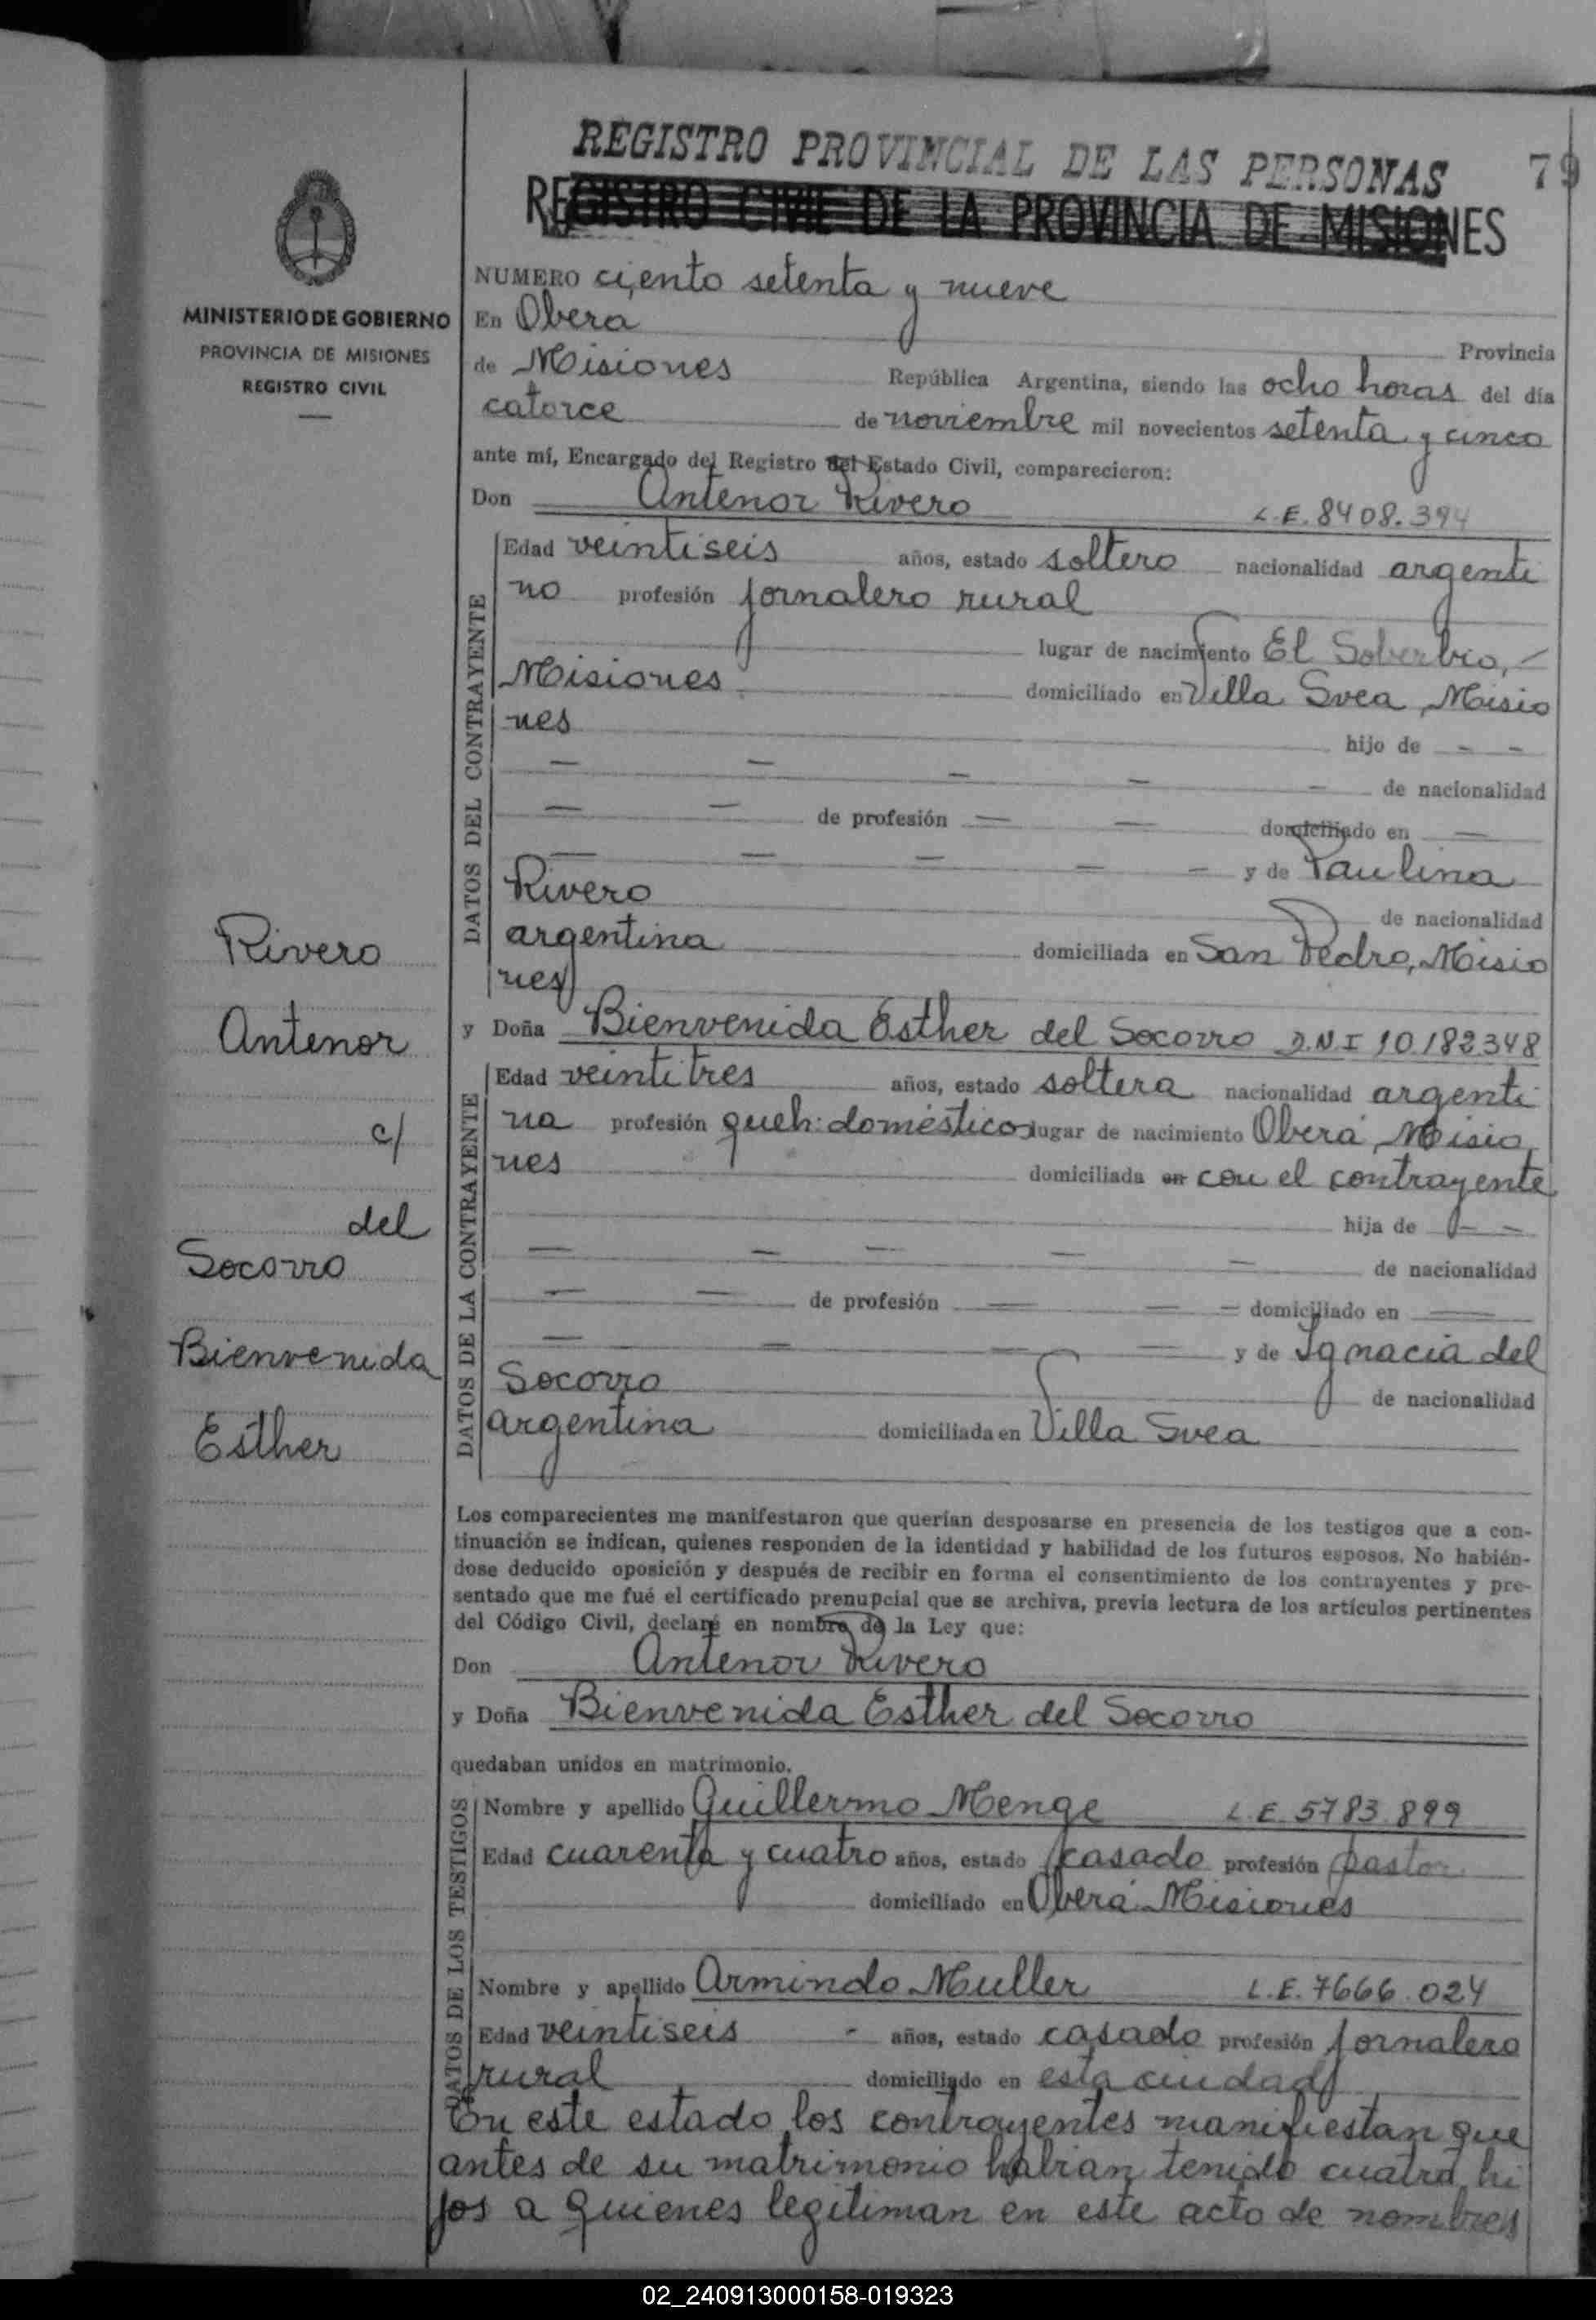 REGISTRO PROVINCIAL DE LAS PERSONAS
79
REGISTRO CIVIL DE LA PROVINCIA DE MISIONES
MINISTERIO DE GOBIERNO
PROVINCIA DE MISIONES
REGISTRO CIVIL
NUMERO ciento setenta y nueve
En Obera Provincia
de Misiones República Argentina, siendo las ocho horas del día
catorce de noviembre mil novecientos setenta y cinco
ante mí, Encargado del Registro del Estado Civil, comparecieron:
Don Antenor Rivero L.E. 8408.394
DATOS DEL CONTRAYENTE
Edad veintiseis años, estado soltero nacionalidad argenti
no profesión jornalero rural
lugar de nacimiento El Soberbio,
Misiones domiciliado en Villa Svea, Misio
nes hijo de - -
— — — — — de nacionalidad
— — de profesión — — domiciliado en —
— — — — — y de Paulina
Rivero de nacionalidad
argentina domiciliada en San Pedro, Misio
nes
y Doña Bienvenida Esther del Socorro D.N.I 10.182.348
DATOS DE LA CONTRAYENTE
Edad veintitres años, estado soltera nacionalidad argenti
na profesión queh. domésticos lugar de nacimiento Oberá, Misio
nes domiciliada en con el contrayente
hija de - -
— — — — — de nacionalidad
— — de profesión — — — domiciliado en —
— — — — y de Ignacia del
Socorro de nacionalidad
argentina domiciliada en Villa Svea
Los comparecientes me manifestaron que querían desposarse en presencia de los testigos que a con-
tinuación se indican, quienes responden de la identidad y habilidad de los futuros esposos. No habién-
dose deducido oposición y después de recibir en forma el consentimiento de los contrayentes y pre-
sentado que me fué el certificado prenupcial que se archiva, previa lectura de los artículos pertinentes
del Código Civil, declaré en nombre de la Ley que:
Don Antenor Rivero
y Doña Bienvenida Esther del Socorro
quedaban unidos en matrimonio.
DATOS DE LOS TESTIGOS
Nombre y apellido Guillermo Menge L.E. 5783.899
Edad cuarenta y cuatro años, estado casado profesión pastor
domiciliado en Oberá Misiones
Nombre y apellido Armindo Muller L.E. 7666.024
Edad veintiseis - años, estado casado profesión jornalero
rural domiciliado en esta ciudad
En este estado los contrayentes manifiestan que
antes de su matrimonio habian tenido cuatro hi
jos a quienes legitiman en este acto de nombres
Rivero
Antenor
c/
del
Socorro
Bienvenida
Esther
02_240913000158-019323